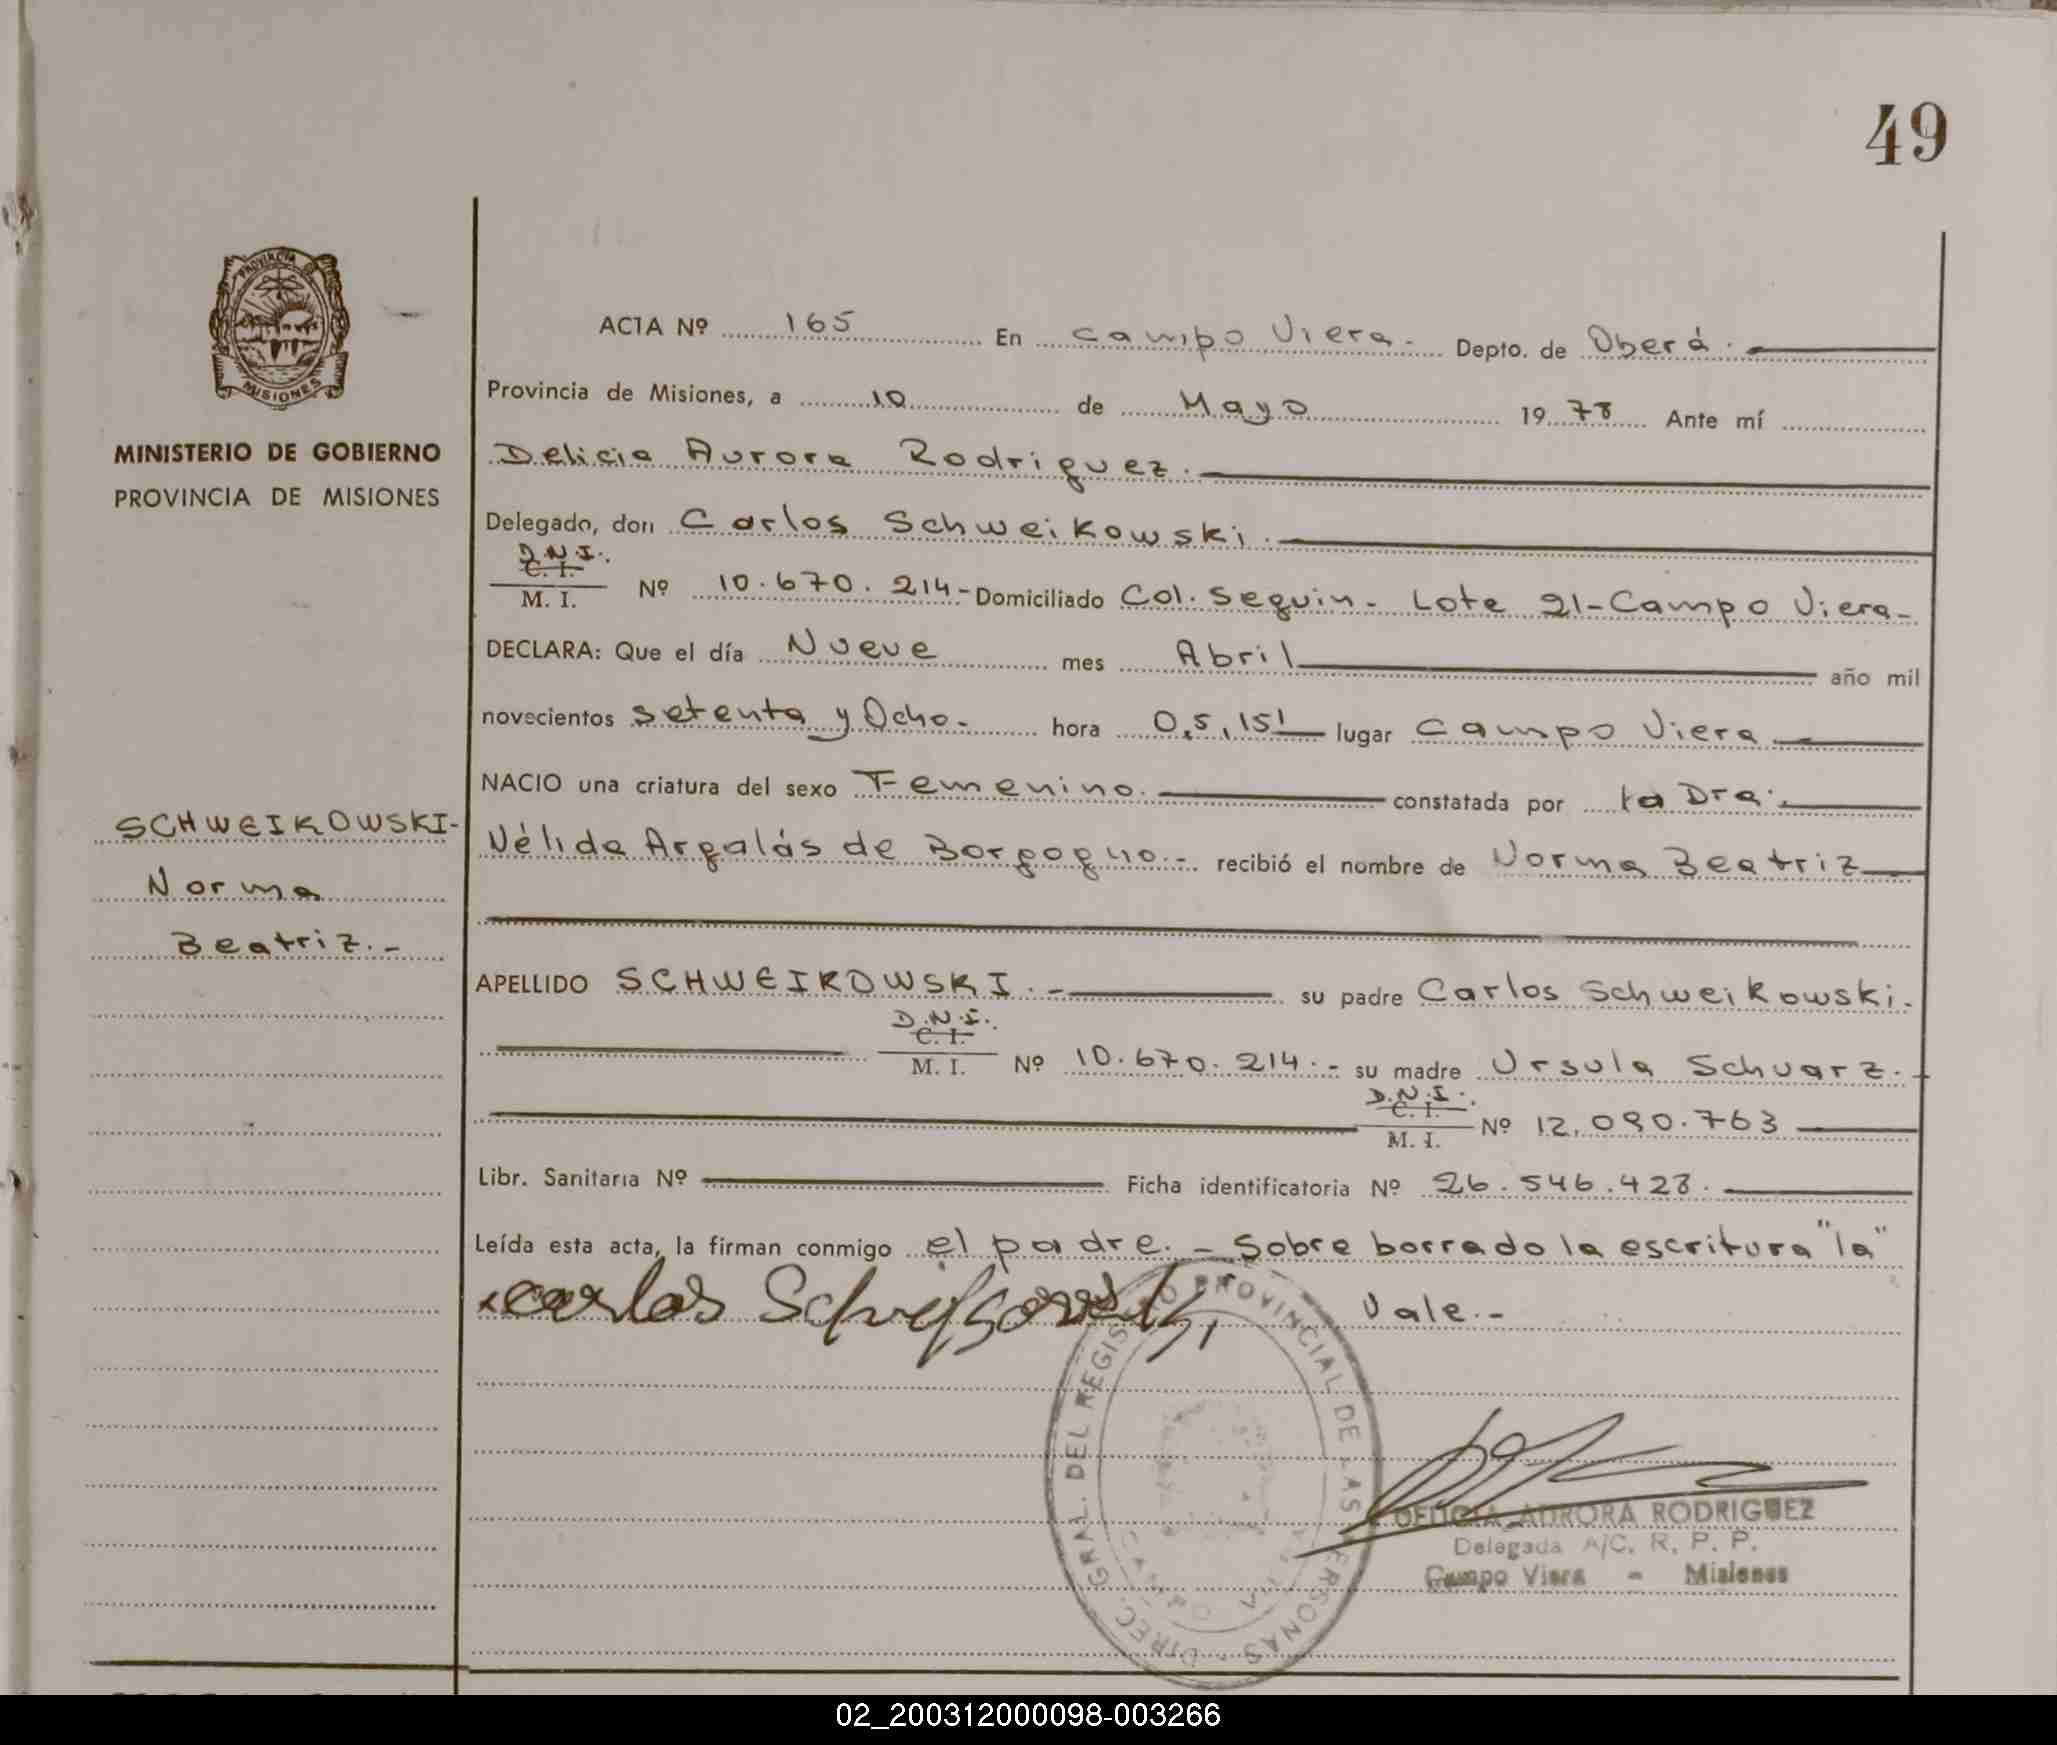 49
PROVINCIA DE
MISIONES
MINISTERIO DE GOBIERNO
PROVINCIA DE MISIONES
SCHWEIKOWSKI-
Norma
Beatriz.-
ACTA Nº 165 En Campo Viera. Depto. de Oberá.
Provincia de Misiones, a 10 de Mayo 1978 Ante mí
Delicia Aurora Rodriguez.
Delegado, don Carlos Schweikowski.
D.N.I.
C. I.
M. I. Nº 10.670.214- Domiciliado Col. Seguin- Lote 21-Campo Viera-
DECLARA: Que el día Nueve mes Abril año mil
novecientos setenta y Ocho. hora 0,5,15' lugar Campo Viera
NACIO una criatura del sexo Femenino. constatada por la Dra.
Nélida Argalás de Borgogno.- recibió el nombre de Norma Beatriz
APELLIDO SCHWEIKOWSKI.- su padre Carlos Schweikowski.
D.N.I.
C. I.
M. I. Nº 10.670.214.- su madre Ursula Schvarz.-
D.N.I.
C. I.
M. I. Nº 12.090.763
Libr. Sanitaria Nº Ficha identificatoria Nº 26.546.423.
Leída esta acta, la firman conmigo el padre.- Sobre borrado la escritura "la"
Vale.-
Carlos
DIREC. GRAL. DEL REGISTRO PROVINCIAL DE LAS PERSONAS
CAMPO VIERA
DELICIA AURORA RODRIGUEZ
Delegada A/C. R. P. P.
Campo Viera - Misiones
02_200312000098-003266